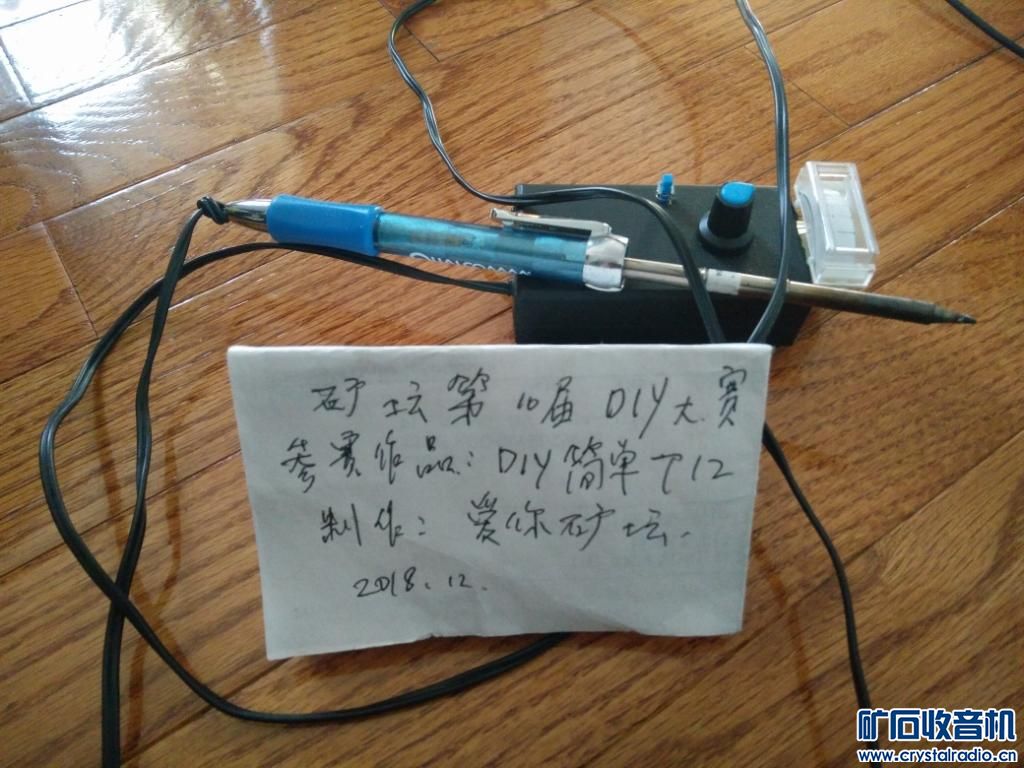 矿坛第10届DIY大赛
参赛作品:DIY简单T12
制作:爱你矿坛.
2018.12.
矿石收音机
www.crystalradio.cn